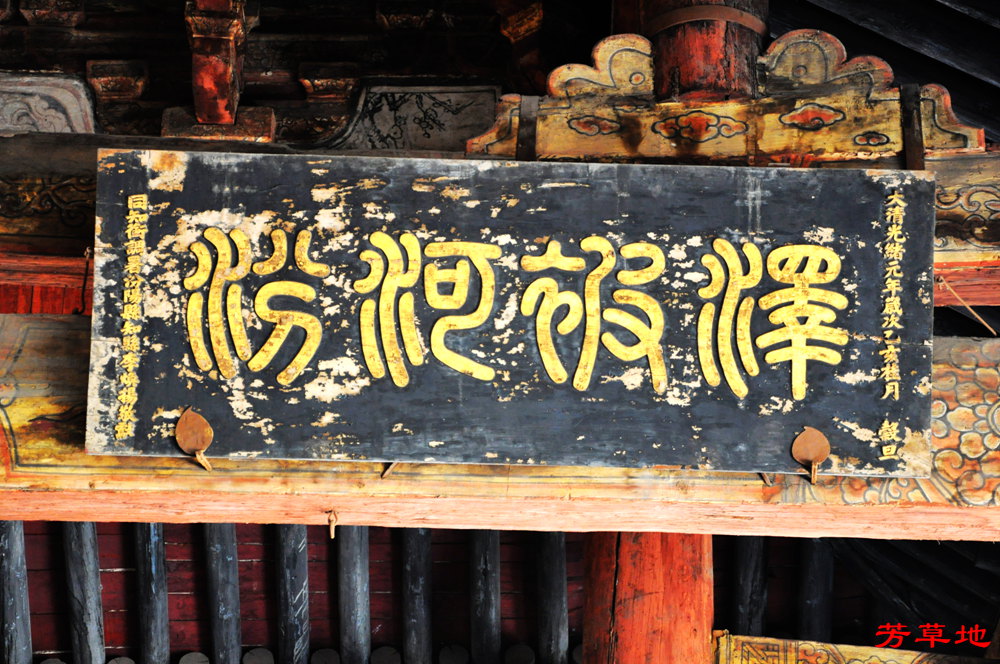 大清光緒元年歲次乙亥桂月 穀旦
澤被河汾
同知銜調署汾陽縣知縣李
芳草地